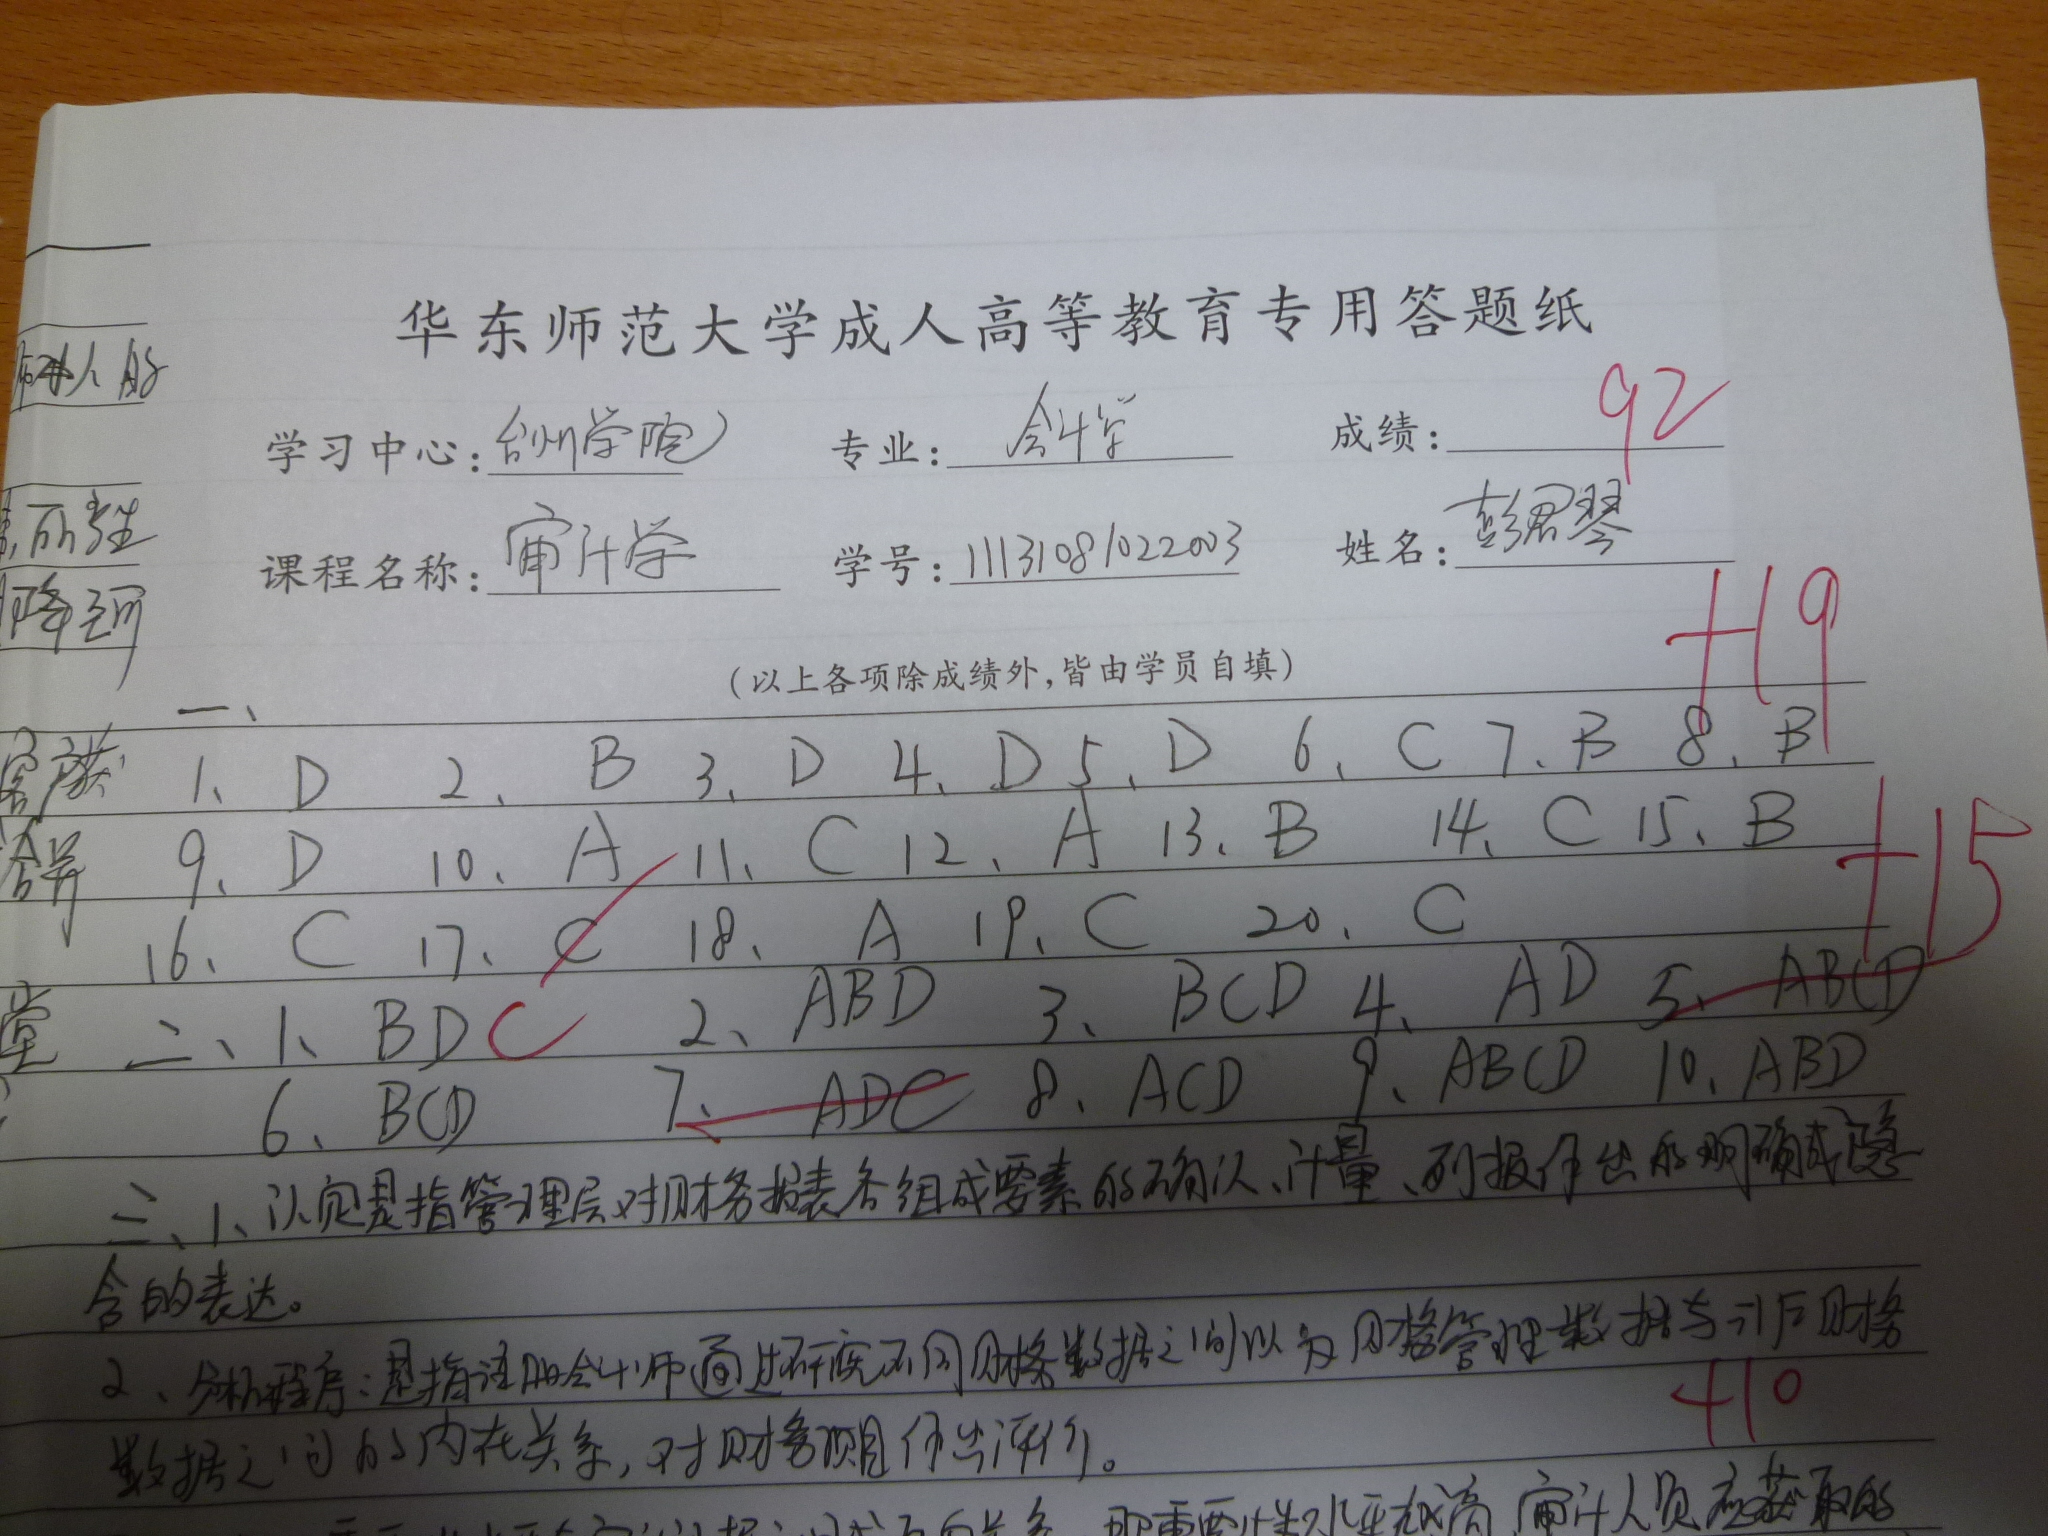 华东师范大学成人高等教育专用答题纸
学习中心: 台州学院 专业: 会计学 成绩: 92
课程名称: 审计学 学号: 11131081022003 姓名: 彭君琴
(以上各项除成绩外,皆由学员自填)
+19
一、
1、D 2、B 3、D 4、D 5、D 6、C 7、B 8、B
9、D 10、A 11、C 12、A 13、B 14、C 15、B
+15
16、C 17、C 18、A 19、C 20、C
二、1、BDC 2、ABD 3、BCD 4、AD 5、ABCD
6、BCD 7、ADC 8、ACD 9、ABCD 10、ABD
三、1、认定是指管理层对财务报表各组成要素的确认、计量、列报作出的明确或隐
含的表达。
2、分析程序:是指注册会计师通过研究不同财务数据之间以及财务管理数据与
财务
+10
数据之间的内在关系,对财务项目作出评价。
重要性水平越高 审计人员应获取的
人的
所发生
降到
客户